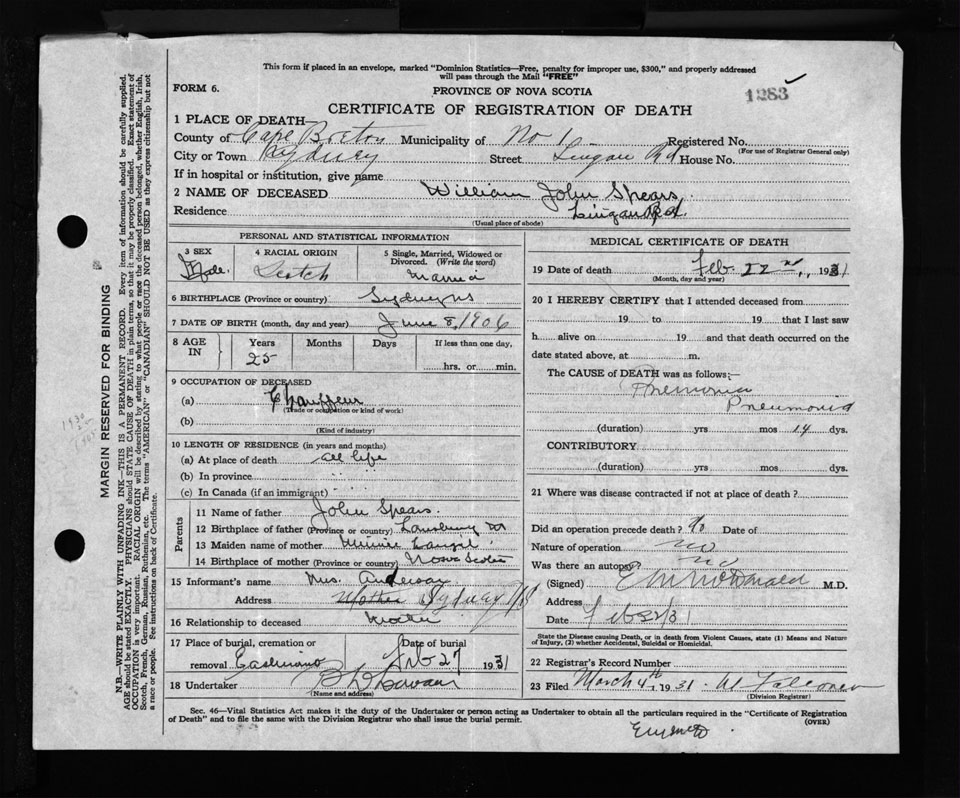 This form if placed in an envelope, marked "Dominion Statistics—Free, penalty for improper use, $300," and properly addressed
will pass through the Mail "FREE"
FORM 6.
PROVINCE OF NOVA SCOTIA
1283
CERTIFICATE OF REGISTRATION OF DEATH
1 PLACE OF DEATH
County of Cape Breton Municipality of No 1 Registered No.
(For use of Registrar General only)
City or Town Sydney Street Lingan Rd House No.
If in hospital or institution, give name
2 NAME OF DECEASED William John Spears
Residence Lingan Rd.
(Usual place of abode)
PERSONAL AND STATISTICAL INFORMATION
3 SEX Male. 4 RACIAL ORIGIN Scotch 5 Single, Married, Widowed or Divorced. (Write the word) Married
6 BIRTHPLACE (Province or country) Sydney NS
7 DATE OF BIRTH (month, day and year) June 8, 1906
8 AGE IN Years 25 Months Days If less than one day, hrs. or min.
9 OCCUPATION OF DECEASED
(a) Chauffeur
(Trade or occupation or kind of work)
(b)
(Kind of industry)
10 LENGTH OF RESIDENCE (in years and months)
(a) At place of death all life
(b) In province " "
(c) In Canada (if an immigrant) " "
Parents
11 Name of father John Spears
12 Birthplace of father (Province or country)
13 Maiden name of mother Minnie
14 Birthplace of mother (Province or country) Nova Scotia
15 Informant's name Mrs. Anderson
Address Mother Sydney NS
16 Relationship to deceased Mother
17 Place of burial, cremation or removal Date of burial Feb 27 1931
18 Undertaker
(Name and address)
MEDICAL CERTIFICATE OF DEATH
19 Date of death Feb. 22nd, 1931
(Month, day and year)
20 I HEREBY CERTIFY that I attended deceased from
19 to 19 that I last saw
h alive on 19 and that death occurred on the
date stated above, at m.
The CAUSE of DEATH was as follows:—
Pnemonia
Pneumonia
(duration) yrs mos 14 dys.
CONTRIBUTORY
(duration) yrs mos dys.
21 Where was disease contracted if not at place of death?
Did an operation precede death? No Date of
Nature of operation no
Was there an autopsy no
(Signed) E M McDonald M.D.
Address
Date Feb 22/31
State the Disease causing Death, or in death from Violent Causes, state (1) Means and Nature
of Injury, (2) whether Accidental, Suicidal or Homicidal.
22 Registrar's Record Number
23 Filed March 4th 1931 W Falconer
(Division Registrar)
Sec. 46—Vital Statistics Act makes it the duty of the Undertaker or person acting as Undertaker to obtain all the particulars required in the "Certificate of Registration
of Death" and to file the same with the Division Registrar who shall issue the burial permit.
(OVER)
MARGIN RESERVED FOR BINDING
N.B.—WRITE PLAINLY WITH UNFADING INK—THIS IS A PERMANENT RECORD. Every item of information should be carefully supplied.
AGE should be stated EXACTLY. PHYSICIANS should STATE CAUSE OF DEATH in plain terms, so that it may be properly classified. Exact statement of
OCCUPATION is very important. RACIAL ORIGIN will be described by stating to what people or race the deceased person belonged, whether English, Irish,
Scotch, French, German, Russian, Ruthenian, etc. The terms "AMERICAN" or "CANADIAN" SHOULD NOT BE USED as they express citizenship but not
a race or people. See instructions on back of Certificate.